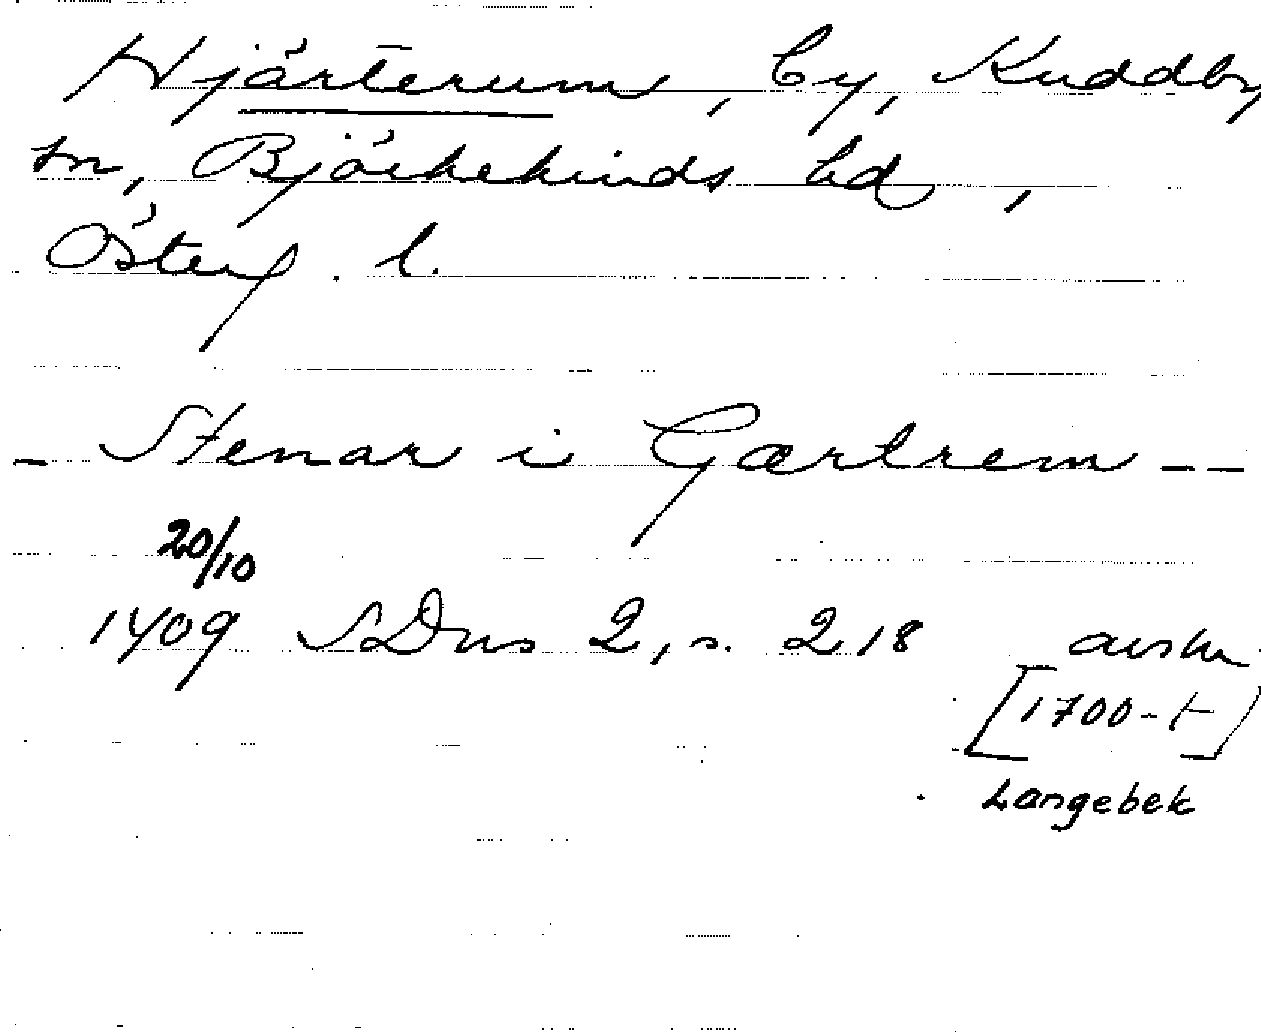 Hjärterum, by, Kuddby
sn, Björkekinds hd,
Österg. l.
- Stenar i Gærtrem --
20/10
1409 SDns 2, s. 218 avskr
[1700-t]
Langebek